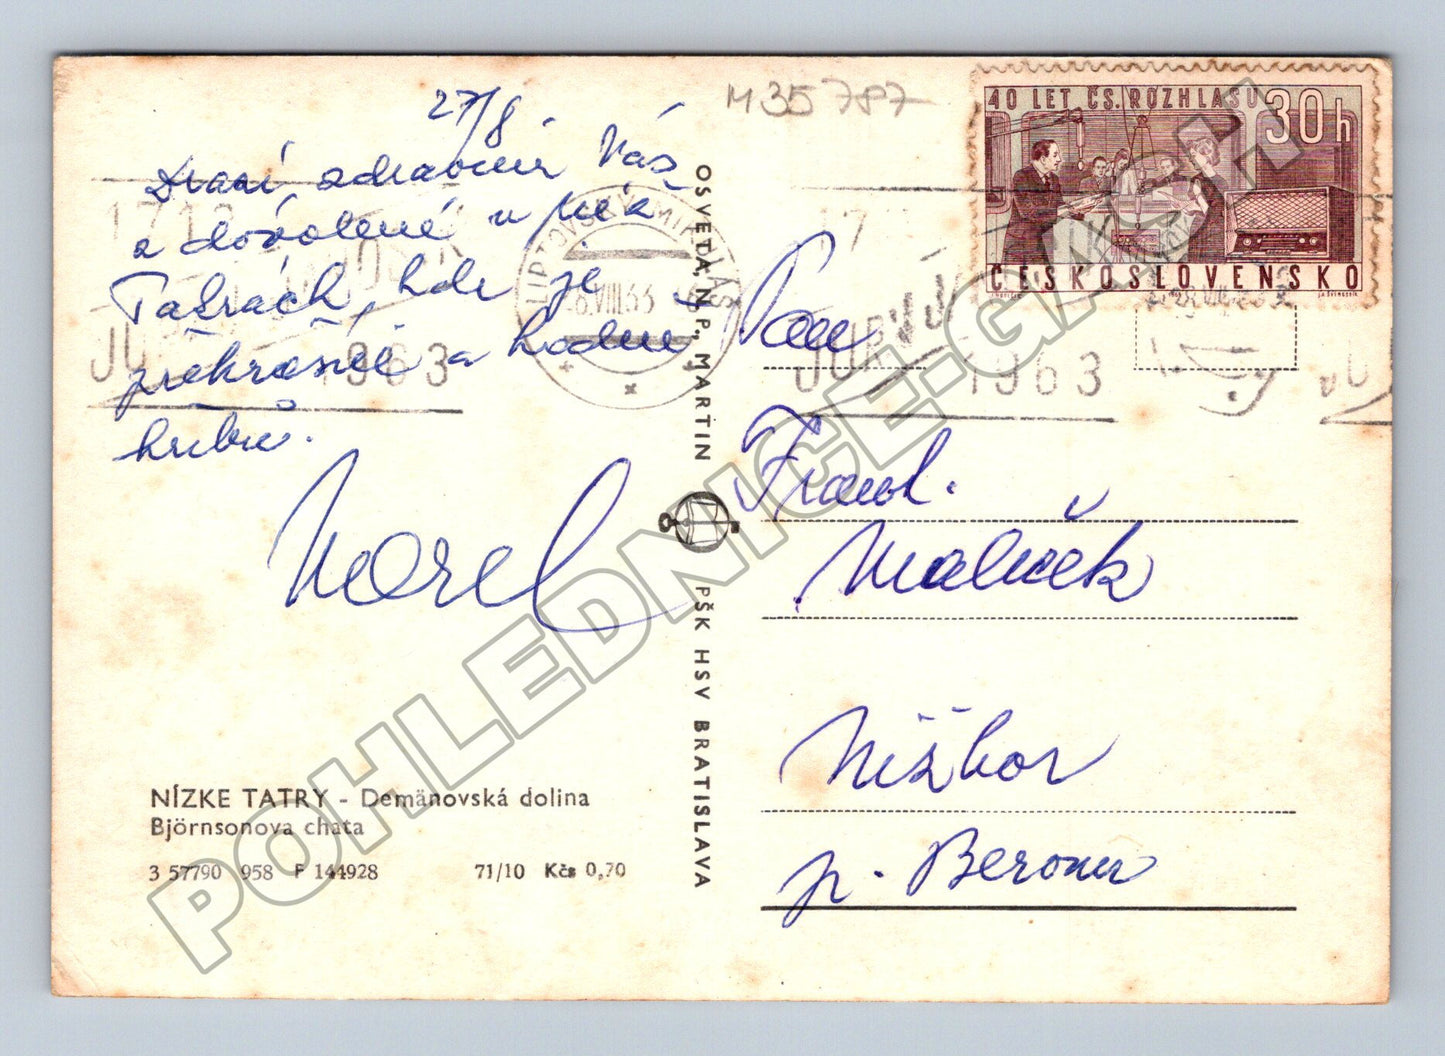 27/8.
Drazí, zdravím Vás
z dovolené v Níz.
Tatrách, kde je
překrásně a hodně
hřibů.
Karel
NÍZKE TATRY - Demänovská dolina
Björnsonova chata
3 57790 958 F 144928 71/10 Kčs 0,70
OSVETA, N. P., MARTIN
PŠK HSV BRATISLAVA
M35787
40 LET ČS. ROZHLASU 30h
ČESKOSLOVENSKO
LIPTOVSKÝ MIKULÁŠ
VIII.63
1713
1963
1963
Pan
Frant.
Malíček
Nižbor
p. Beroun
POHLEDNICE-GASH